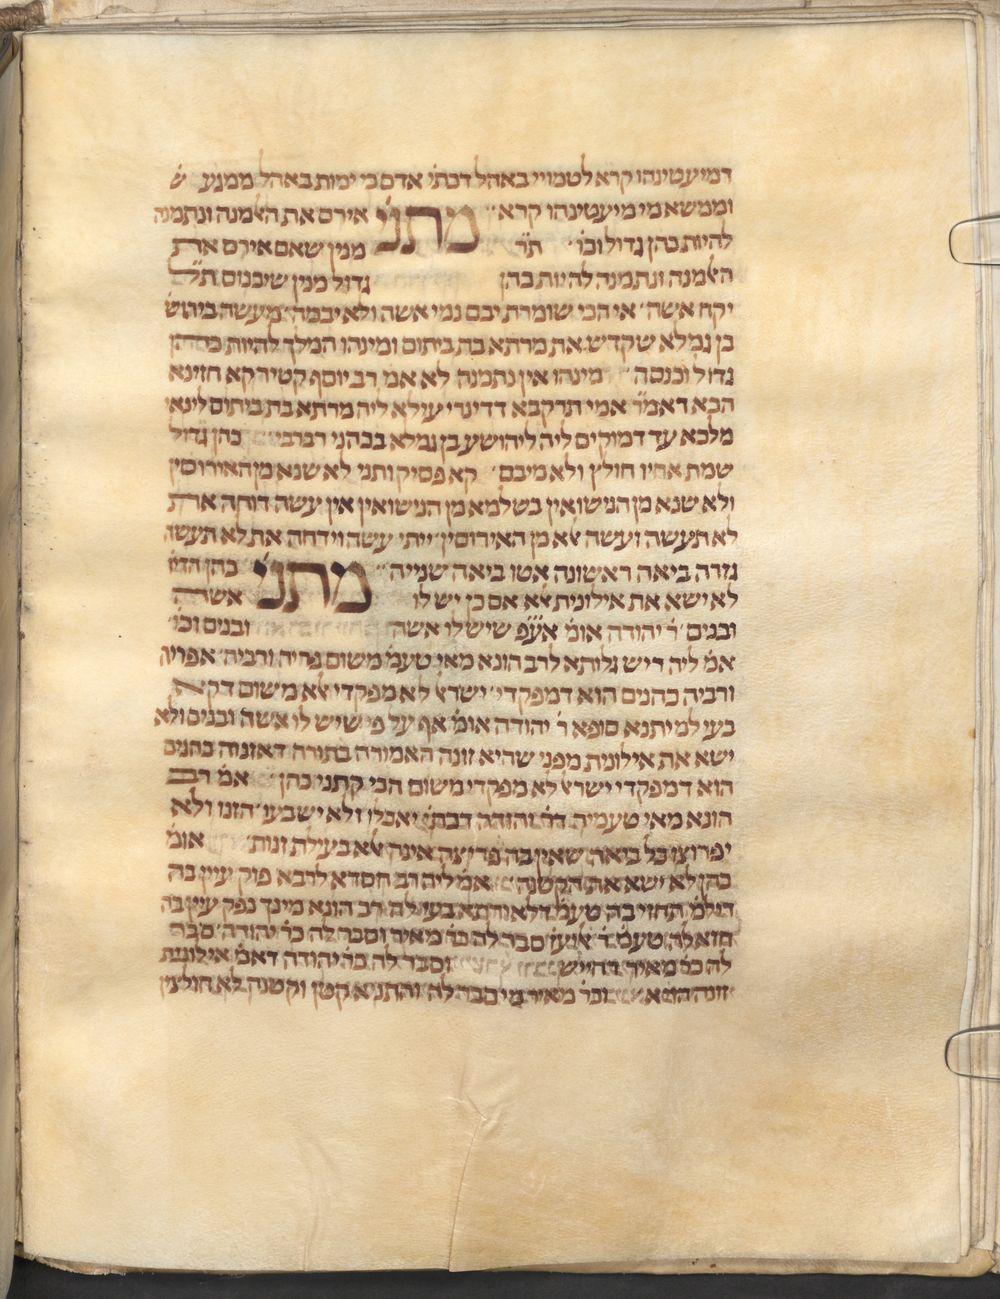 דמיעטינהו קרא לטמויי באהל דכתי' אדם כי ימות באהל ממגע
וממשא מי מיעטינהו קרא מתני' אירס את האלמנה ונתמנה
להיות כהן גדול וכו' ת"ר מנין שאם אירס את
האלמנה ונתמנה להיות כהן גדול מנין שיכנוס ת"ל
יקח אשה אי הכי שומרת יבם נמי אשה ולא יבמה מעשה ביהוש'
בן גמלא שקדש את מרתא בת ביתוס ומינהו המלך להיות כהן
גדול וכנסה מינהו אין נתמנה לא אמ' רב יוסף קטיר קא חזינא
הכא דאמ"ר אסי תרקבא דדינרי עילא ליה מרתא בת ביתוס לינאי
מלכא עד דמוקים ליה ליהושע בן גמלא בכהני רברבי כהן גדול
שמת אחיו חולץ ולא מיבם קא פסיק ותני לא שנא מן האירוסין
ולא שנא מן הנישואין בשלמא מן הנישואין אין עשה דוחה את
לא תעשה ועשה אלא מן האירוסין ייתי עשה וידחה את לא תעשה
גזרה ביאה ראשונה אטו ביאה שנייה מתני' כהן הדיו'
לא ישא את אילונית אלא אם כן יש לו אשה
ובנים ר' יהודה אומ' אע"פ שיש לו אשה ובנים וכו'
אמ' ליה ריש גלותא לרב הונא מאי טעמ' משום פריה ורביה אפריה
ורביה כהנים הוא דמפקדי ישראל לא מפקדי אלא משום דקא
בעי למיתנא סופא ר' יהודה אומ' אף על פי שיש לו אשה ובנים ולא
ישא את אילונית מפני שהיא זונה האמורה בתורה דאזונה כהנים
הוא דמפקדי ישראל לא מפקדי משום הכי קתני כהן אמ' רב
הונא מאי טעמיה דר' יהודה דכתי' ואכלו ולא ישבעו הזנו ולא
יפרוצו כל ביאה שאין בה פריצה אינה אלא בעילת זנות אומ'
כהן לא ישא את הקטנה אמ' ליה רב חסדא לרבא פוק עיין בה
דלמ' התחזי בה טעמ' דלאורתא בעי לה רב הונא מינך נפק עיין בה
חזא לה טעמ' ר' אליעז' סבר לה כר' מאיר וסבר לה כר' יהודה סבר
לה כר' מאיר דחייש וסבר לה כר' יהודה דאמ' אילונית
זונה היא וכר' מאיר מי סבר לה והתניא קטן וקטנה לא חולצין